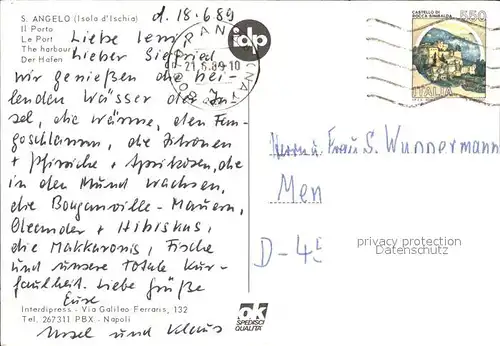 S. ANGELO (Isola d'Ischia)
Il Porto
Le Port
The harbour
Der Hafen
d. 18.6.89
Liebe Irmi
Lieber Siegfried
wir genießen die hei-
lenden Wässer der In-
sel, die Wärme, den Fan-
goschlamm, die Zitronen
+ Pfirsiche + Aprikosen, die
in den Mund wachsen,
die Bouganville-Mauern,
Oleander + Hibiskus,
die Makkaronis, Fische
und unsere totale Kur-
faulheit. Liebe Grüße
Eure
Ursel und Klaus
Interdipress - Via Galileo Ferraris, 132
Tel. 267311 PBX - Napoli
idp
21.6.89.10
CASTELLO DI
ROCCA SINIBALDA
550
ITALIA
Herrn u. Frau S. Wunnermann
Men
D-45
privacy protection
Datenschutz
ok
SPEDISCI
QUALITÀ